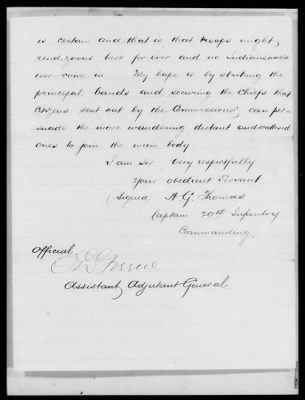 is certain and that is that troops might
rendezvous here for ever and no Indians would
ever come in. My hope is by striking the
principal bands and securing the Chiefs that
Citizens sent out by the Commissioner, can per-
suade the more wandering distant and scattered
ones to join the main body
I am Sir Very respectfully
Your obedient Servant
(Signed) H G. Thomas
Captain 20th Infantry
Commanding.
Official
Assistant Adjutant General.